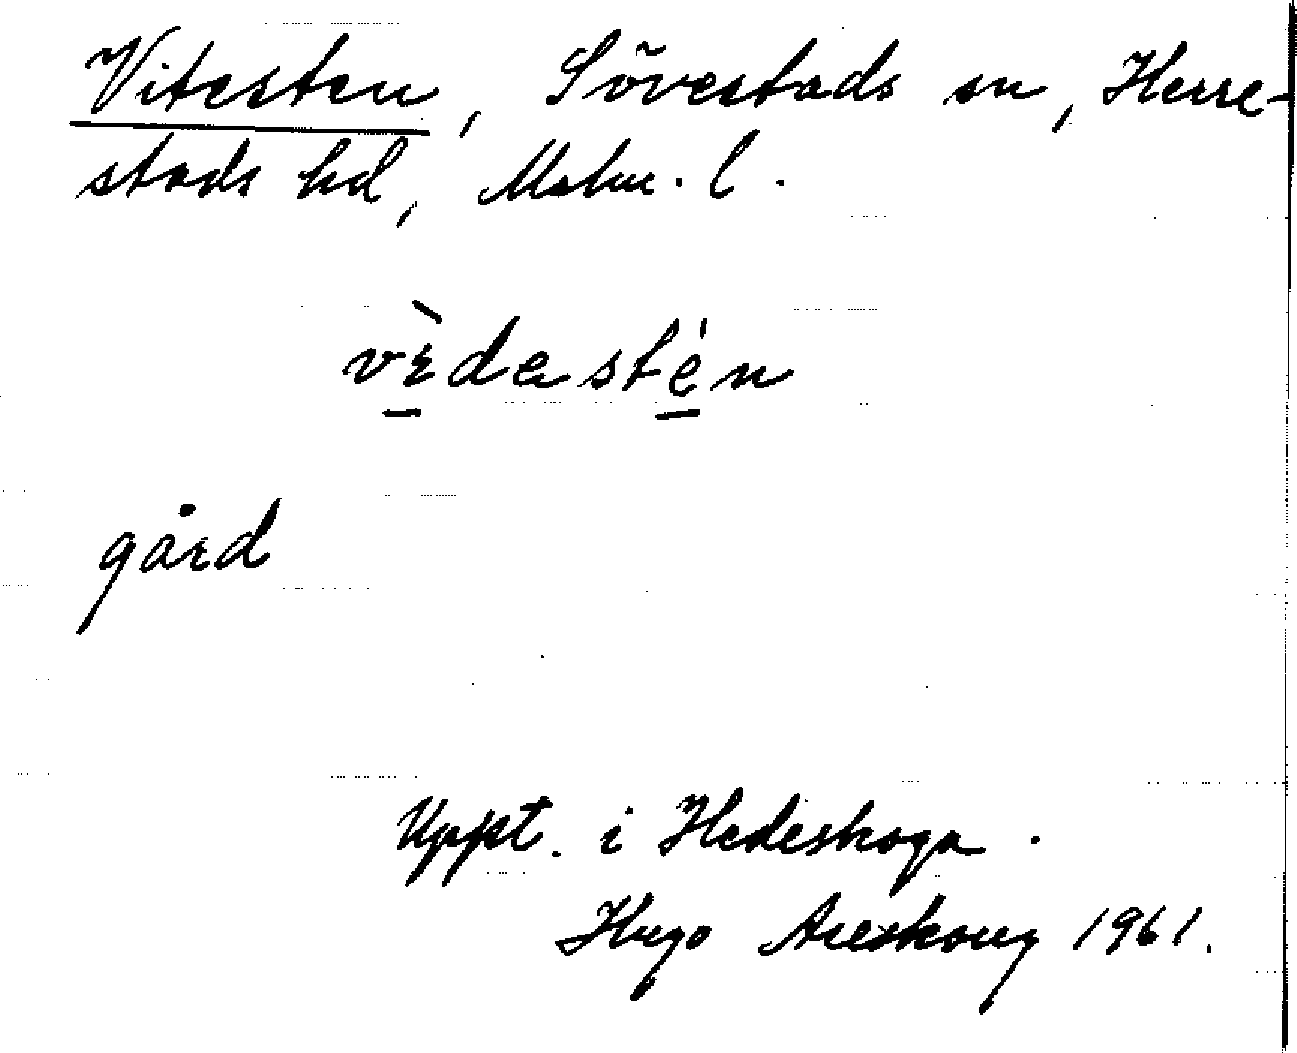 Vitesten, Sövestads sn, Herre-
stads hd, Malm. l.
vèdastén
gård
Uppt. i Hedeskoga.
Hugo Areskoug 1961.